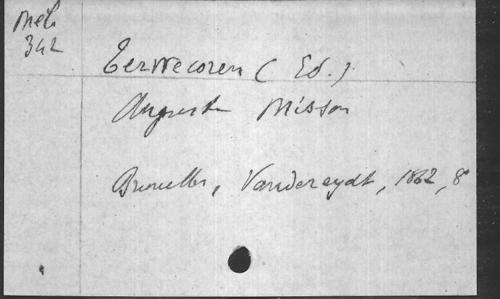 Mél
342
Terwecoren (Ed.)
Auguste Misson
Bruxelles, Vandereydt, 1862, 8°